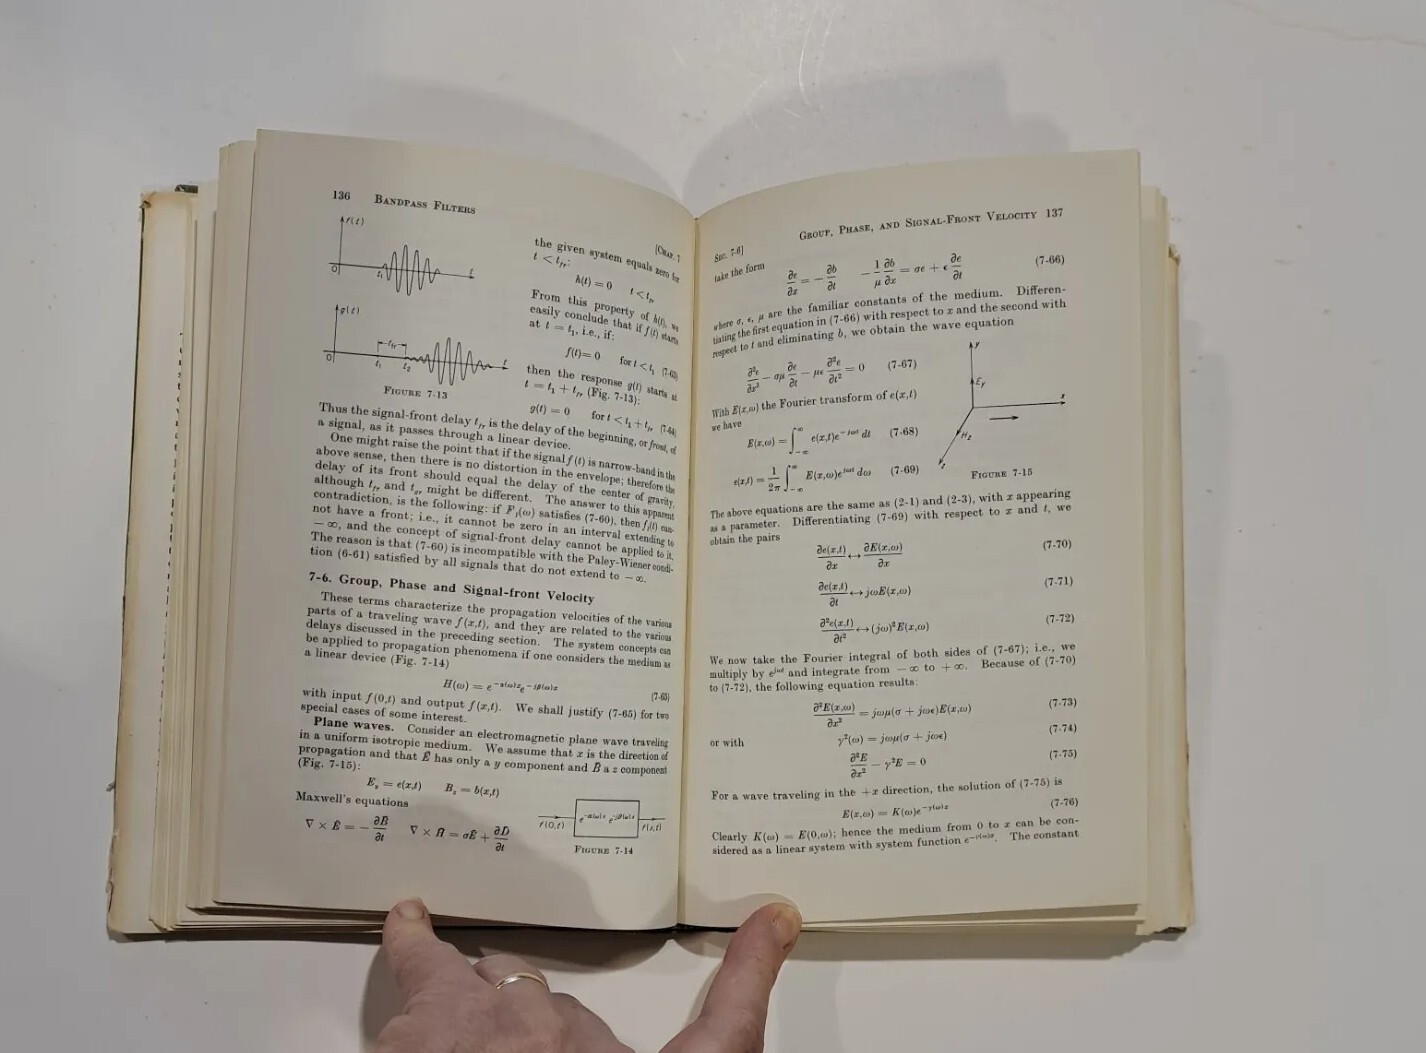 136 BANDPASS FILTERS
[CHAP. 7
f(t)
0
t₁
t
g(t)
0
t_fr
t₁
t₂
t
FIGURE 7-13
the given system equals zero for
t < t_fr:
h(t) = 0 t < t_fr
From this property of h(t), we
easily conclude that if f(t) starts
at t = t₁, i.e., if:
f(t) = 0 for t < t₁ (7-63)
then the response g(t) starts at
t = t₁ + t_fr (Fig. 7-13):
g(t) = 0 for t < t₁ + t_fr (7-64)
Thus the signal-front delay t_fr is the delay of the beginning, or front, of
a signal, as it passes through a linear device.
One might raise the point that if the signal f(t) is narrow-band in the
above sense, then there is no distortion in the envelope; therefore the
delay of its front should equal the delay of the center of gravity,
although t_fr and t_gr might be different. The answer to this apparent
contradiction, is the following: if F₁(ω) satisfies (7-60), then f₁(t) can-
not have a front; i.e., it cannot be zero in an interval extending to
−∞, and the concept of signal-front delay cannot be applied to it.
The reason is that (7-60) is incompatible with the Paley-Wiener condi-
tion (6-61) satisfied by all signals that do not extend to −∞.
7-6. Group, Phase and Signal-front Velocity
These terms characterize the propagation velocities of the various
parts of a traveling wave f(x,t), and they are related to the various
delays discussed in the preceding section. The system concepts can
be applied to propagation phenomena if one considers the medium as
a linear device (Fig. 7-14)
H(ω) = e^−α(ω)x e^−jβ(ω)x (7-65)
with input f(0,t) and output f(x,t). We shall justify (7-65) for two
special cases of some interest.
Plane waves. Consider an electromagnetic plane wave traveling
in a uniform isotropic medium. We assume that x is the direction of
propagation and that Ē has only a y component and B̄ a z component
(Fig. 7-15):
E_y = e(x,t) B_z = b(x,t)
Maxwell's equations
∇ × Ē = −∂B̄/∂t ∇ × H̄ = σĒ + ∂D̄/∂t
f(0,t)
e^−α(ω)x e^−jβ(ω)x
f(x,t)
FIGURE 7-14
SEC. 7-6] GROUP, PHASE, AND SIGNAL-FRONT VELOCITY 137
take the form
∂e/∂x = −∂b/∂t −1/μ ∂b/∂x = σe + ϵ ∂e/∂t (7-66)
where σ, ϵ, μ are the familiar constants of the medium. Differen-
tiating the first equation in (7-66) with respect to x and the second with
respect to t and eliminating b, we obtain the wave equation
∂²e/∂x² − σμ ∂e/∂t − μϵ ∂²e/∂t² = 0 (7-67)
With E(x,ω) the Fourier transform of e(x,t)
we have
E(x,ω) = ∫_−∞^∞ e(x,t)e^−jωt dt (7-68)
e(x,t) = 1/2π ∫_−∞^∞ E(x,ω)e^jωt dω (7-69)
y
E_y
x
H_z
z
FIGURE 7-15
The above equations are the same as (2-1) and (2-3), with x appearing
as a parameter. Differentiating (7-69) with respect to x and t, we
obtain the pairs
∂e(x,t)/∂x ↔ ∂E(x,ω)/∂x (7-70)
∂e(x,t)/∂t ↔ jωE(x,ω) (7-71)
∂²e(x,t)/∂t² ↔ (jω)²E(x,ω) (7-72)
We now take the Fourier integral of both sides of (7-67); i.e., we
multiply by e^jωt and integrate from −∞ to +∞. Because of (7-70)
to (7-72), the following equation results:
∂²E(x,ω)/∂x² = jωμ(σ + jωϵ)E(x,ω) (7-73)
or with γ²(ω) = jωμ(σ + jωϵ) (7-74)
∂²E/∂x² − γ²E = 0 (7-75)
For a wave traveling in the +x direction, the solution of (7-75) is
E(x,ω) = K(ω)e^−γ(ω)x (7-76)
Clearly K(ω) = E(0,ω); hence the medium from 0 to x can be con-
sidered as a linear system with system function e^−γ(ω)x. The constant